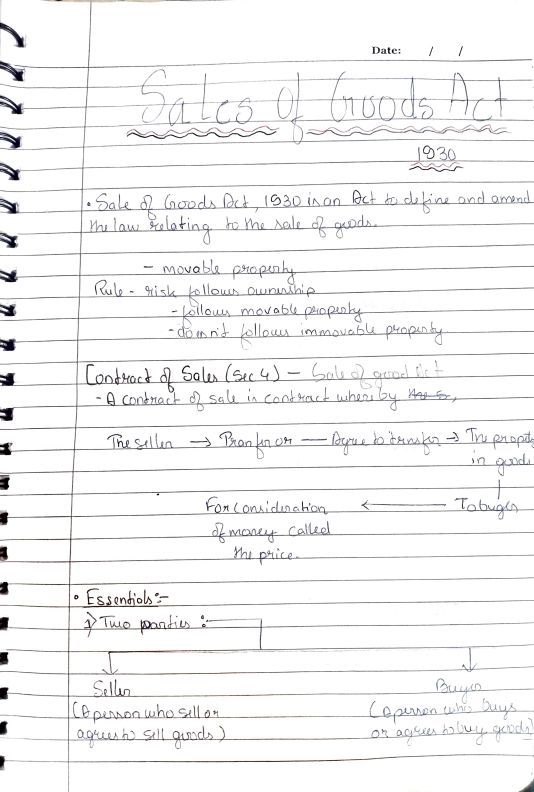 Date: / /
Sales of Goods Act
1930
• Sale of Goods Act, 1930 is an Act to define and amend
the law relating to the sale of goods.
- movable property
Rule - risk follows ownership
- follows movable property
- doesn't follows immovable property
Contract of Sales (Sec 4) - Sale of good Act
- A contract of sale is contract whereby
The seller → Transfer or — Agree to transfer → The property
in goods
For consideration ← To buyer
of money called
the price.
• Essentials :-
1) Two parties :-
Seller Buyer
(A person who sell or (A person who buys
agrees to sell goods) or agrees to buy goods)